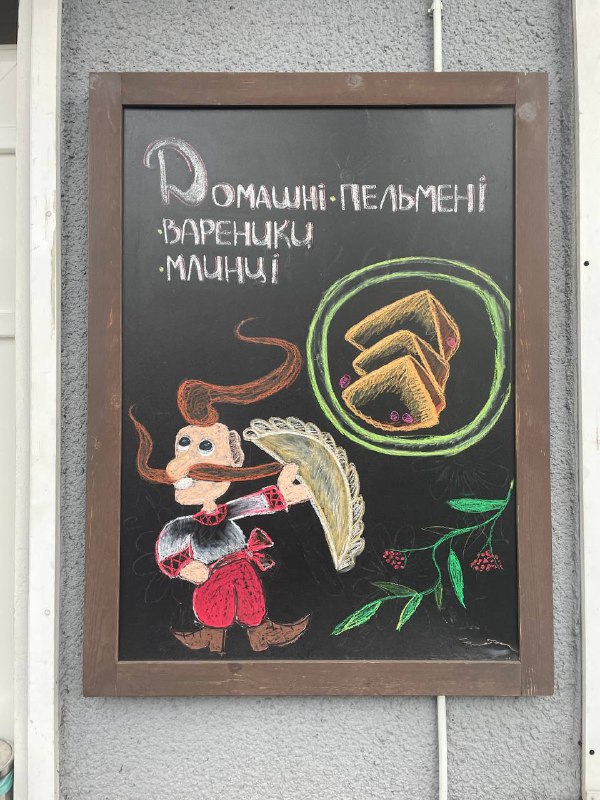 Домашні · пельмені
· вареники
· млинці